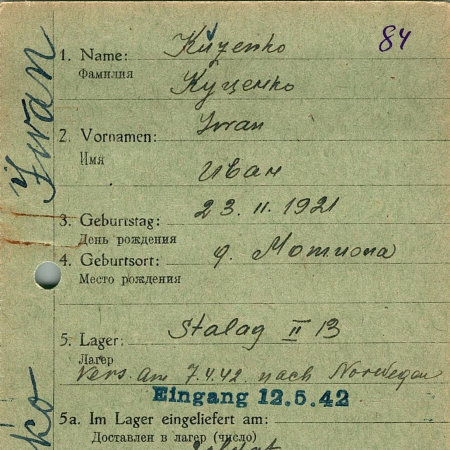 84
Iwan
1. Name: Kuzenko
Фамилия Куценко
2. Vornamen: Iwan
Имя Иван
3. Geburtstag: 23. 11. 1921
День рождения
4. Geburtsort: g.
Место рождения
5. Lager: Stalag II B
Лагер
Vers. am 7.4.42. nach Norwegen
Eingang 12.5.42
5a. Im Lager eingeliefert am:
Доставлен в лагер (число)
ko